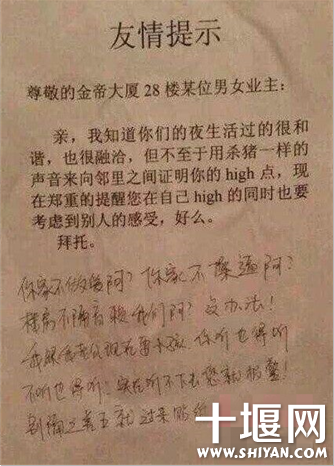 友情提示
尊敬的金帝大厦28楼某位男女业主：
亲，我知道你们的夜生活过的很和
谐，也很融洽，但不至于用杀猪一样的
声音来向邻里之间证明你的high点，现
在郑重的提醒您在自己high的同时也要
考虑到别人的感受，好么。
拜托。
你家不做爱阿？你家不操逼阿？
楼房不隔音赖我们阿？没办法！
我跟我老公现在要小孩，你听也得听
不听也得听！实在听不下去您就
别隔三差五就过来贴纸
十堰网
WWW.SHIYAN.COM